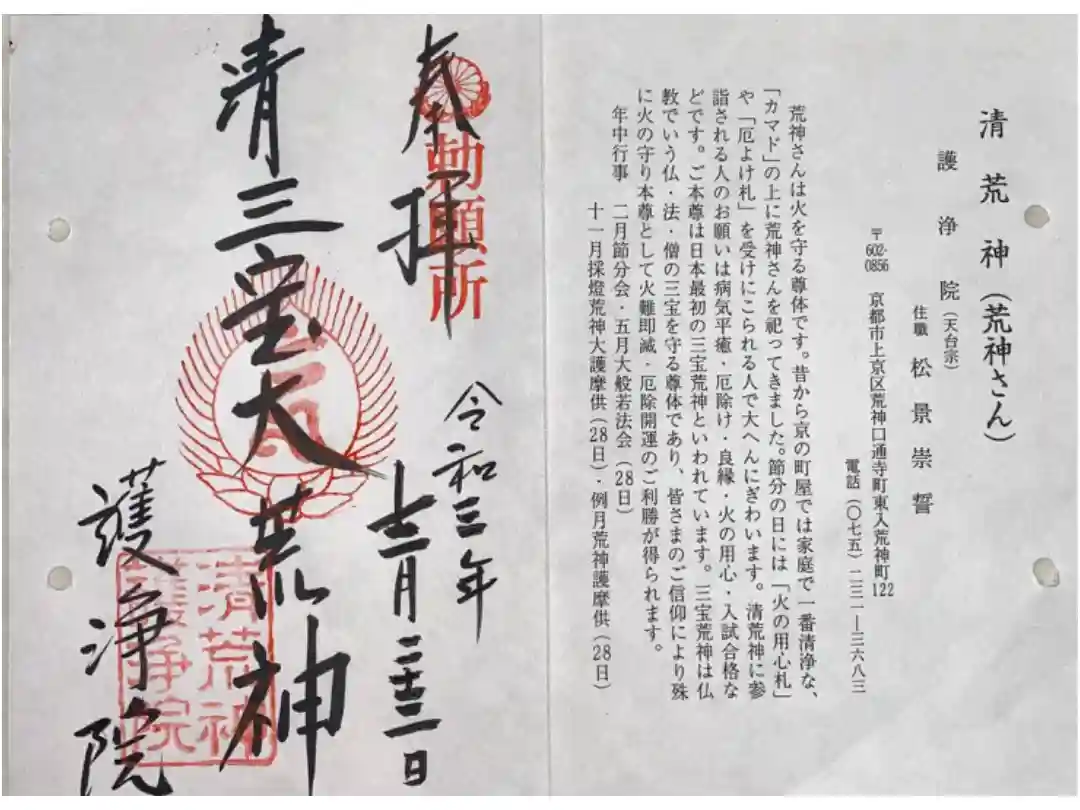 清荒神（荒神さん）
護浄院（天台宗）
住職 松景崇誓
〒602-0856 京都市上京区荒神口通寺町東入荒神町122
電話（〇七五）二三一―三六八三
荒神さんは火を守る尊体です。昔から京の町屋では家庭で一番清浄な、
「カマド」の上に荒神さんを祀ってきました。節分の日には「火の用心札」
や「厄よけ札」を受けにこられる人で大へんにぎわいます。清荒神に参
詣される人のお願いは病気平癒・厄除け・良縁・火の用心・入試合格な
どです。ご本尊は日本最初の三宝荒神といわれています。三宝荒神は仏
教でいう仏・法・僧の三宝を守る尊体であり、皆さまのご信仰により殊
に火の守り本尊として火難即滅・厄除開運のご利勝が得られます。
年中行事 二月節分会・五月大般若法会（28日）
十一月採燈荒神大護摩供（28日）・例月荒神護摩供（28日）
奉拝
勅願所
令和三年
十二月二十三日
清三宝大荒神
護浄院
清荒神
護浄院